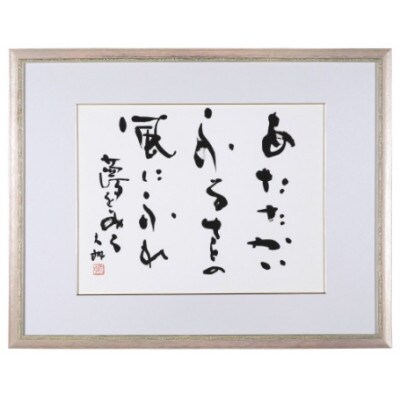 あたたかい
ふるさとの
風にふれ
夢をみる